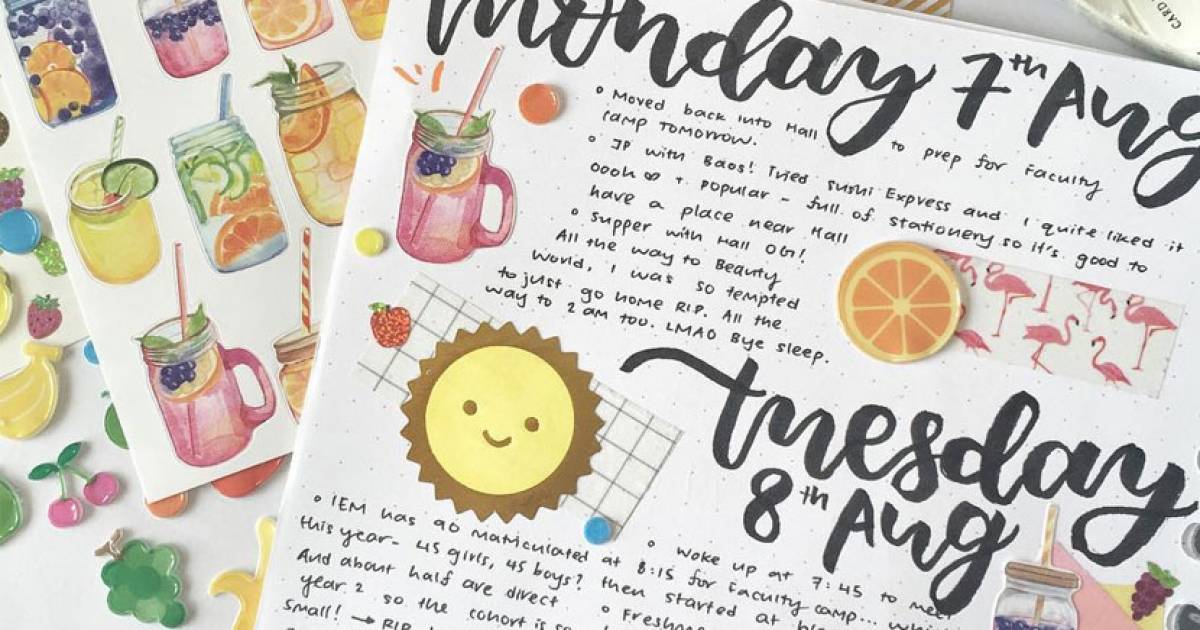 Monday 7th Aug
• Moved back into Hall to prep for Faculty
camp TOMORROW.
• JP with Baos! Tried Sushi Express and I quite liked it
oooh ∞ + Popular - full of stationery so it's good to
have a place near Hall
• Supper with Hall OG!
All the way to Beauty
World, I was so tempted
to just go home RIP. All the
way to 2am too. LMAO Bye sleep.
Tuesday
8th Aug
• IEM has 90 matriculated
this year- 45 girls, 45 boys?
And about half are direct
year 2 so the cohort is so
small! → RIP
• Woke up at 7:45 to meet
at 8:15 for faculty camp...
then started at
• Freshmen
CARD